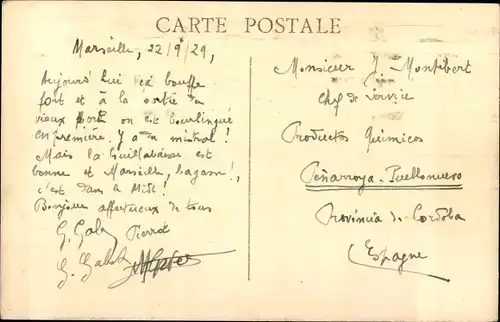 CARTE POSTALE
Marseille, 22/9/29,
Aujourd'hui ça bouffe
fort et à la sortie du
vieux port on est bourlingué
en première. Y a du mistral!
Mais la bouillabaisse est
bonne et Marseille, bagasse!,
c'est dans le Midi!
Bonjour affectueux de tous
Pierrot
Monsieur J. Montibert
Chef de Service
Productos Quimicos
Peñarroya-Pueblonuevo
Provincia de Cordoba
Espagne